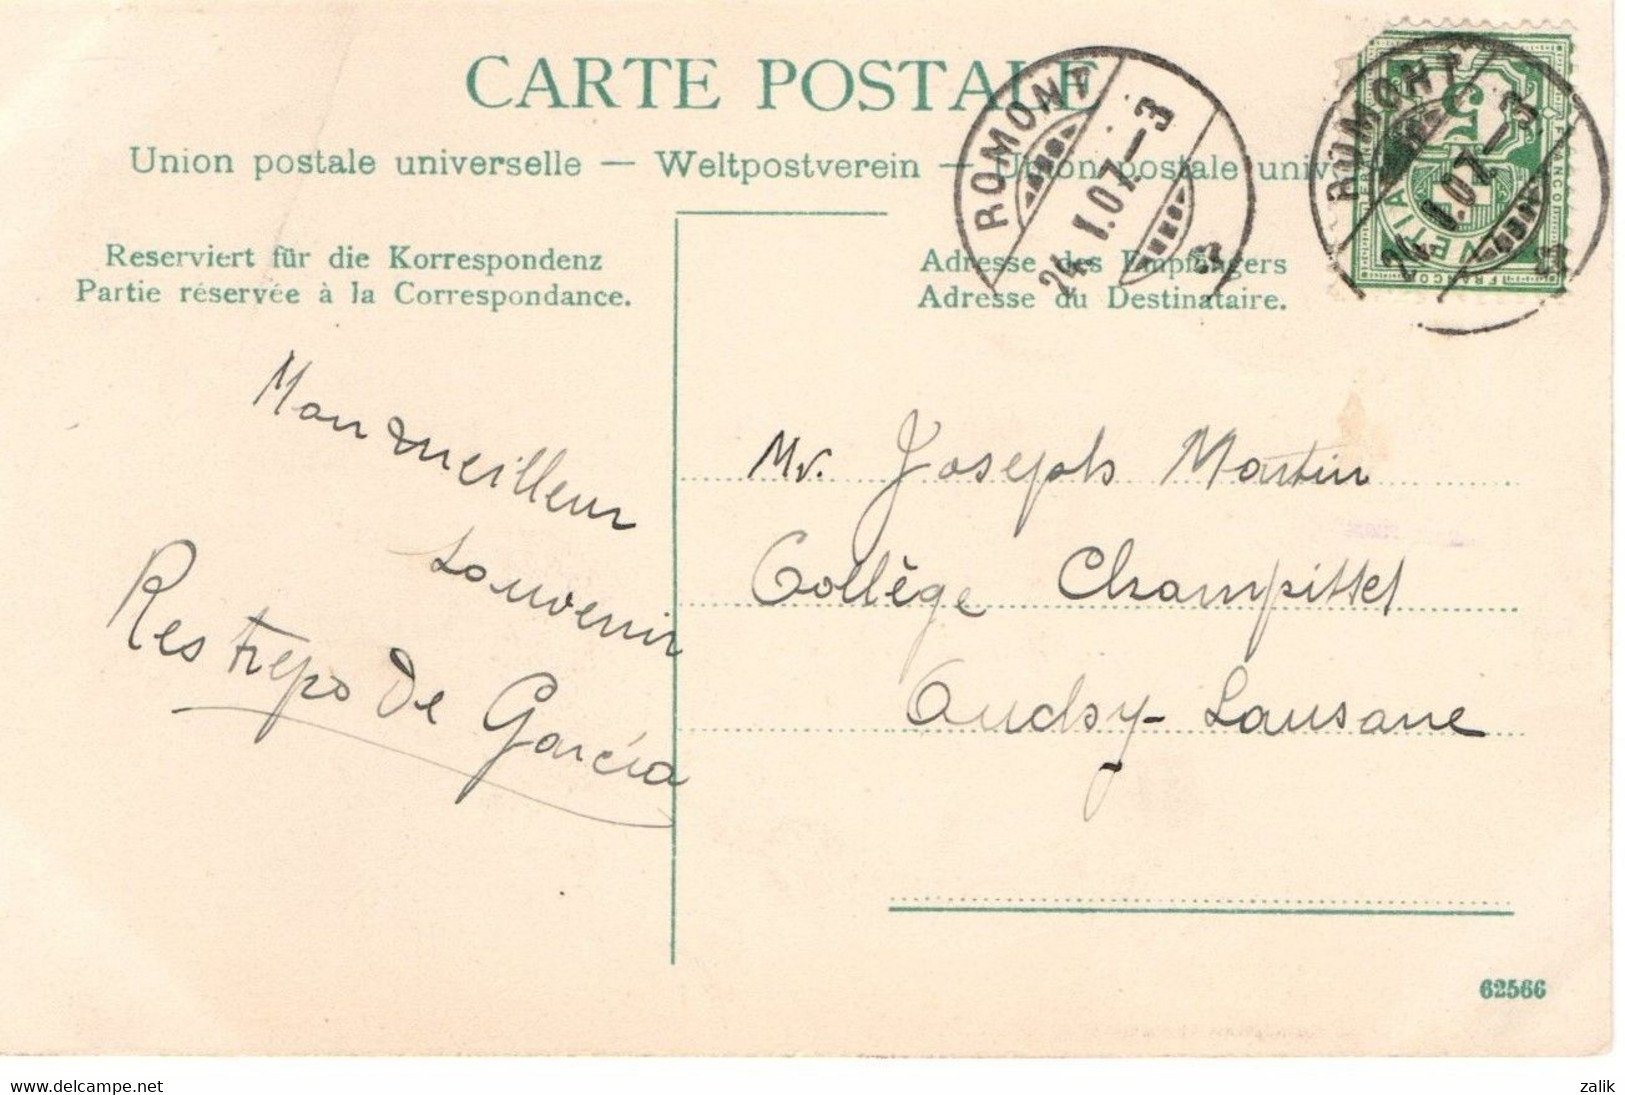 CARTE POSTALE
Union postale universelle — Weltpostverein — Union postale univ
Reserviert für die Korrespondenz
Partie réservée à la Correspondance.
Adresse des Empfängers
Adresse du Destinataire.
ROMONT
24.I.07.–3
ROMONT
24.I.07.–3
5
FRANCO
FRANCO
Mon meilleur
souvenir
Restrepo de García
Mr. Joseph Martin
Collège Champittet
Ouchy - Lausane
62566
www.delcampe.net
zalik